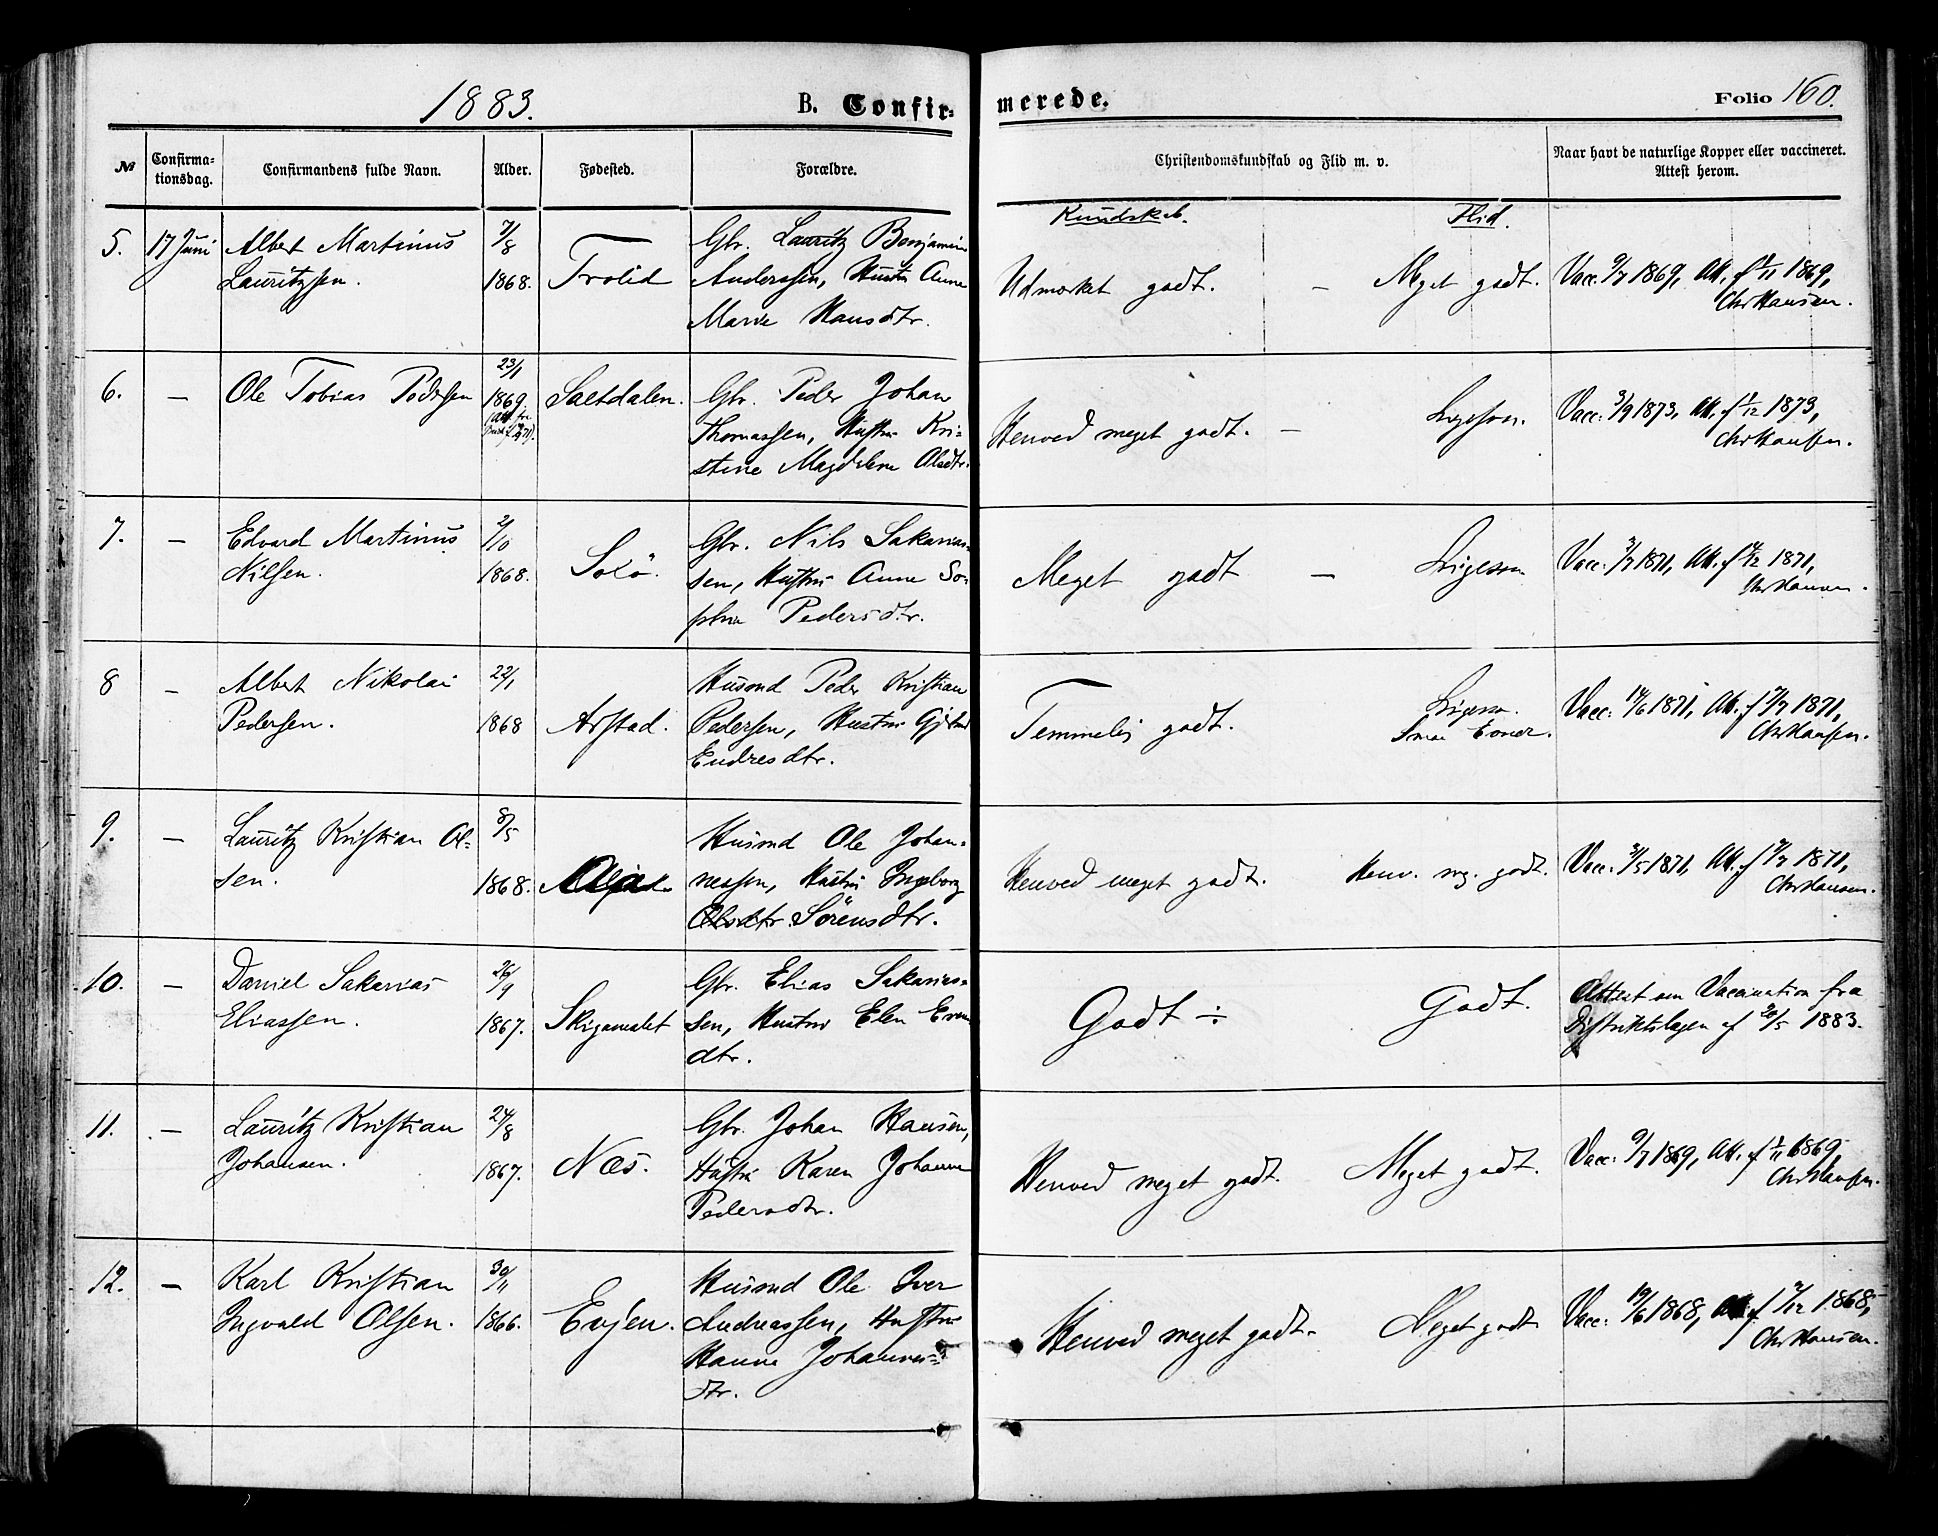 1883. B. Confir-
merede. Folio 160.
№ Confirma-
tionsdag. Confirmandens fulde Navn. Alder. Fødested. Forældre. Christendomskundskab og Flid m. v. Naar havt de naturlige Kopper eller vaccineret.
Attest herom.
Kundskab. Flid.
5. 17 Juni Albert Martinus
Lauritzsen.
7/8
1868.
Trolid
Gbr. Lauritz Benjamin
Anderssen, Hustru Anne
Marie Hansdtr.
Udmærket godt. – Meget godt.
Vacc. 9/7 1869, Att. f 1/11 1869,
Chr Hansen.
6. – Ole Tobias Pedersen
23/1
1869.
Saltdalen.
Gbr. Peder Johan
Thomassen, Hustru Kri-
stine Magdalene Olsdtr.
Henved meget godt. – Ligesom.
Vacc: 3/9 1873, Att. f 1/12 1873,
Chr Hansen.
7. – Edvard Martinus
Nilsen.
2/10
1868.
Solö.
Gbr. Nils Sakarias-
sen, Hustru Anne So-
phie Pedersdtr.
Meget godt – Ligesom
Vacc: 3/7 1871, Att. f 4/12 1871,
Chr Hansen.
8 – Albert Nikolai
Pedersen.
22/1
1868
Arstad.
Husmd Peder Kristian
Pedersen, Hustru
Endresdtr.
Temmelig godt. Ligesom.
Smaa Evner.
Vacc: 14/6 1871, Att. f 7/7 1871,
Chr Hansen.
9. – Lauritz Kristian Ol-
sen.
8/5
1868.
Husmd Ole Johan-
nessen, Hustru Ingeborg
Olsdtr. Sörensdtr.
Henved meget godt. Henv. mg. godt.
Vacc: 31/5 1871, Att. f 7/7 1871,
Chr Hansen.
10. – Daniel Sakarias
Eliassen.
26/9
1867.
Skigamalet
Gbr. Elias Sakarias-
sen, Hustru Elen Evens
dtr.
Godt ÷ Godt.
Attest om Vaccination fra
Distriktslægen af 20/5 1883.
11. – Lauritz Kristian
Johansen.
24/8
1867.
Næs.
Gbr. Johan Hansen,
Hustru Karen Johanne
Pedersdtr.
Henved meget godt. Meget godt.
Vacc: 9/7 1869, Att. f 1/11 1869,
Chr Hansen.
12. – Karl Kristian
Ingvald Olsen.
30/11
1866.
Evjen.
Husmd Ole Iver
Andreassen, Hustru
Hanna Johannes-
dtr.
Henved meget godt. Meget godt
Vacc: 19/6 1868, Att. f 7/12 1868,
Chr Hansen.